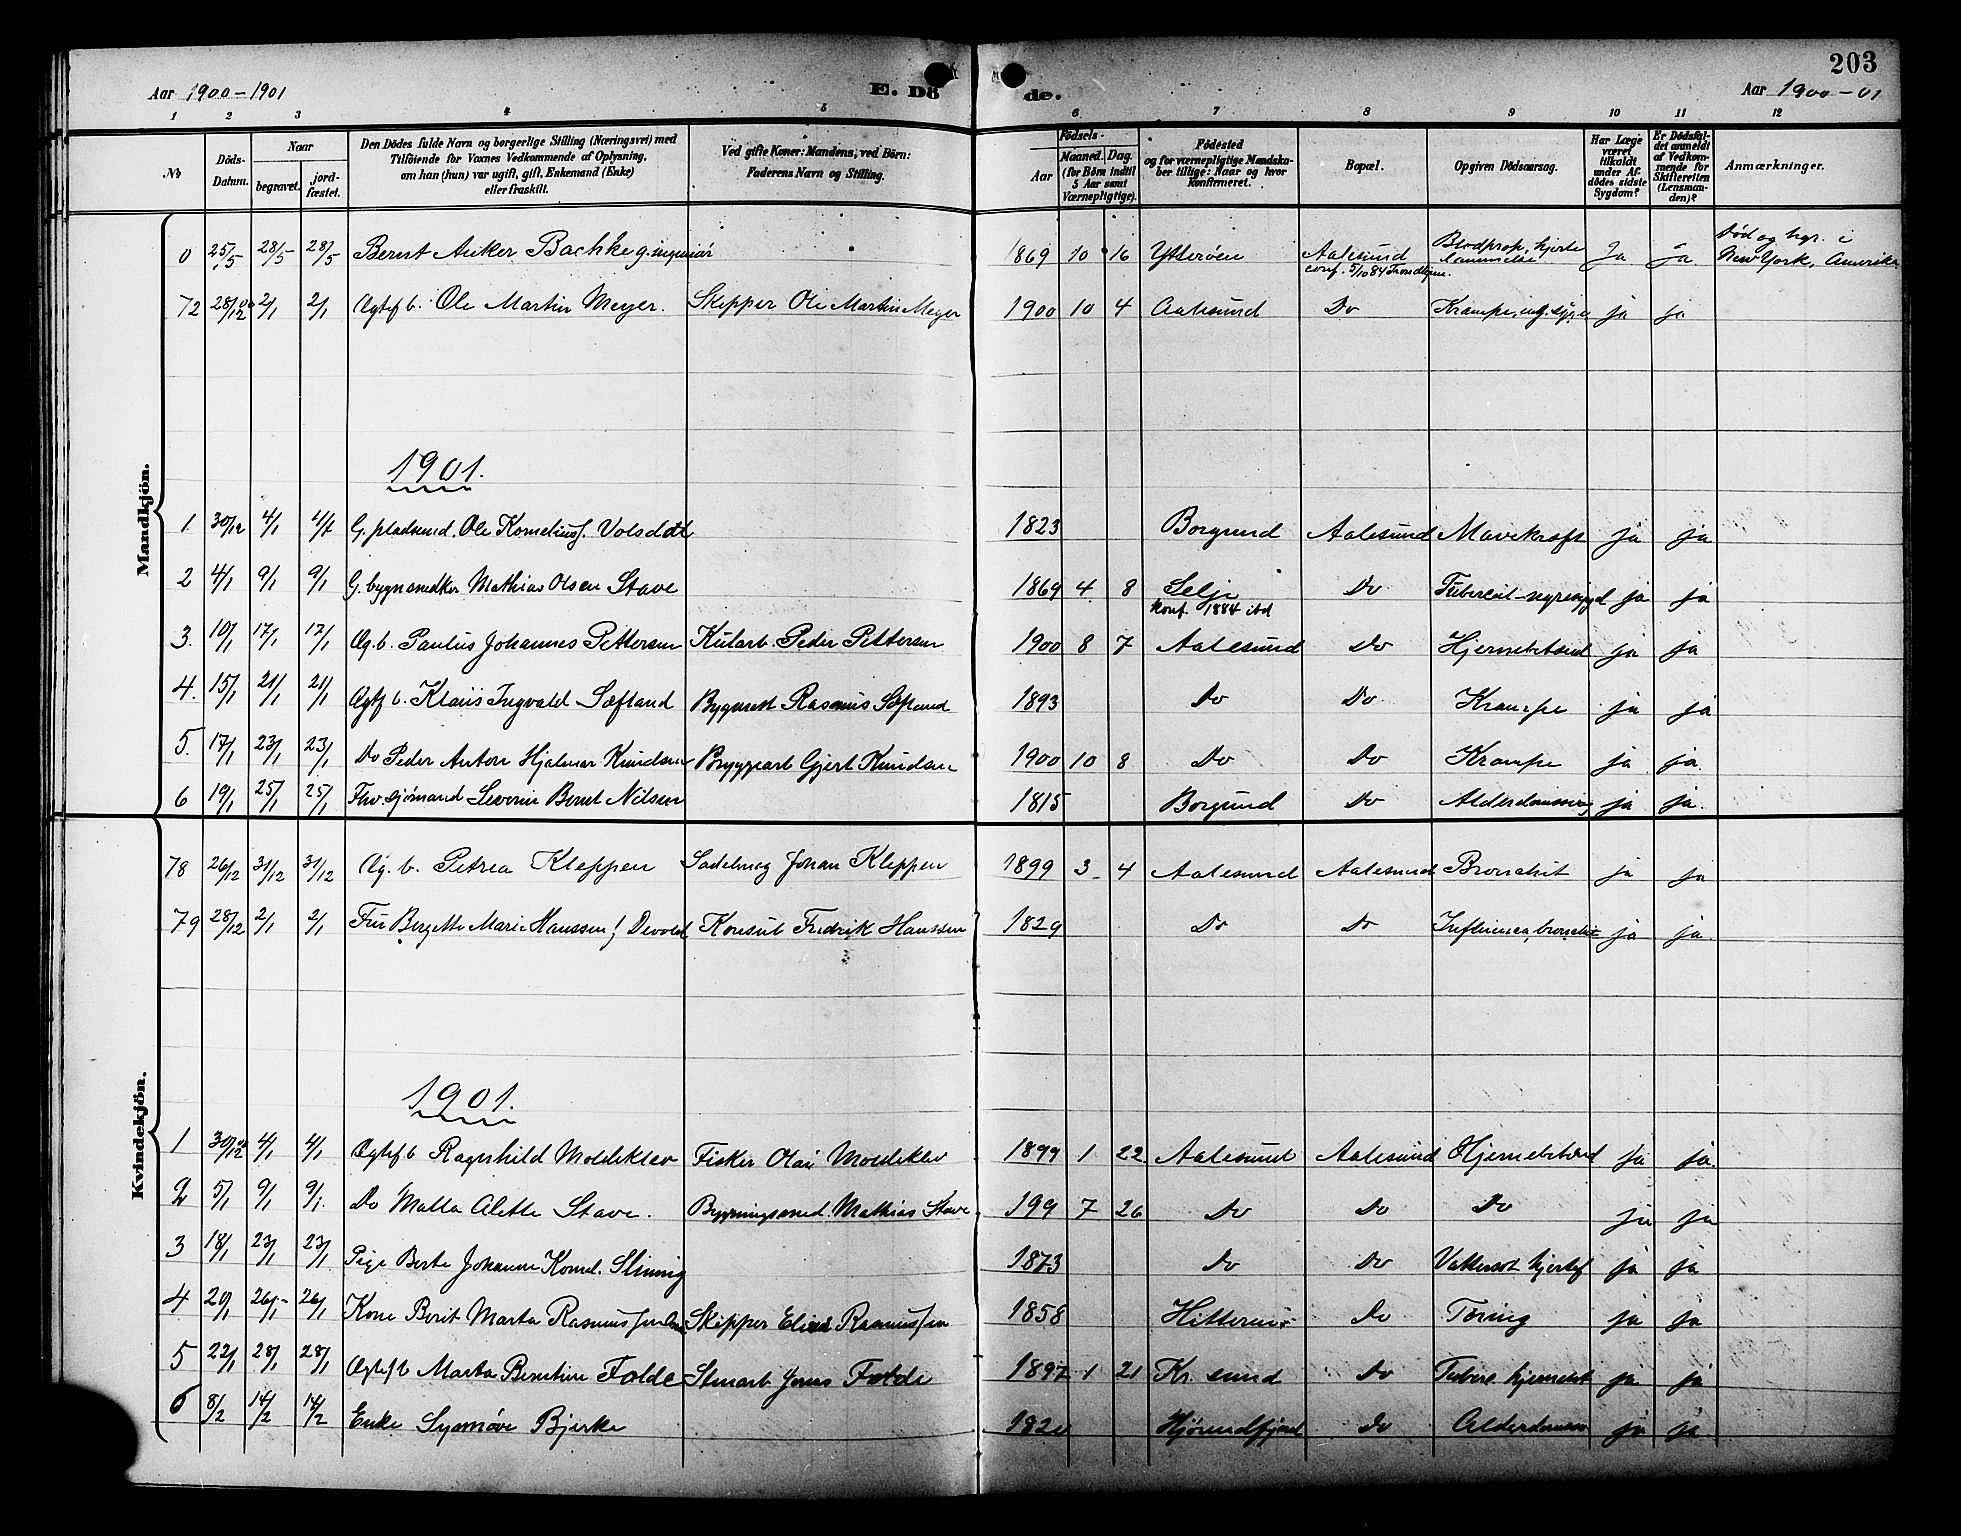 203
Aar 1900-1901
E. Dö de.
Aar 1900-01
1 2 3 4 5 6 7 8 9 10 11 12
No
Döds-Datum.
Naar
begravet.
jord-fæstet.
Den Dödes fulde Navn og borgerlige Stilling (Næringsvei) med
Tilföiende for Voxnes Vedkommende af Oplysning,
om han (hun) var ugift, gift, Enkemand (Enke)
eller fraskilt.
Ved gifte Koner: Mandens, ved Börn:
Faderens Navn og Stilling.
Födsels-
Aar
Maaned. Dag.
(for Börn indtil
5 Aar samt
Værnepligtige).
Födested
og for værnepligtige Mandska-
ber tillige: Naar og hvor
Konfirmeret.
Bopæl.
Opgiven Dödsaarsag.
Har Læge
været
tilkaldt
under Af-
dödes sidste
Sygdom?
Er Dödsfal-
det anmeldt
af Vedkom-
mende for
Skifteretten
(Lensman-
den)?
Anmærkninger.
Mandkjön.
0 25/5 28/5 28/5 Bernt Anker Bachke g. ingeniør 1869 10 16 Ytterøen Aalesund conf. 5/10 84 Blodprop, hjerte ja ja Død og begr. i New York, Amerika
72 28/12 2/1 2/1 Ægtef b. Ole Martin Meyer. Skipper Ole Martin Meyer 1900 10 4 Aalesund Do Krampe, ja ja
1901.
1 30/12 4/1 4/1 G. pladsmd. Ole Kornelius f. Volsdal 1823 Borgund Aalesund Mavekræft ja ja
2 4/1 9/1 9/1 G. bygn snedker Mathias Olsen Stave 1869 4 8 Selje konf. 1884 ibd Do Tubercul. nyresygd ja ja
3. 10/1 17/1 17/1 Æg. b. Paulus Johannes Pettersen Kularb. Peder Pettersen 1900 8 7 Aalesund Do Hjernebetænd ja ja
4. 15/1 21/1 21/1 Ægtf b. Klaus Ingvald Sæfland Bygmest Rasmus Sæfland 1893 Do Do Krampe ja ja
5. 17/1 23/1 23/1 Do Peder Anton Hjalmar Knudsen Bryggearb Gjert Knudsen 1900 10 8 Do Do Krampe ja ja.
6 19/1 25/1 25/1 Fhv. sjømand Severin Bernt Nilsen 1815 Borgund Do Alderdomssvag ja ja.
Kvindekjön.
78 26/12 31/12 31/12 Æg. b. Petrea Kleppen Sadelmag Johan Kleppen 1899 3 4 Aalesund Aalesund Bronchit ja ja
79 28/12 2/1 2/1 Fru Bergette Marie Hanssen f. Devold Konsul Fredrik Hanssen 1829 Do Do Influenca, bronchit ja ja.
1901.
1 30/12 4/1 4/1 Ægtef b Ragnhild Moldeklev Fisker Olai Moldeklev 1899 1 22 Aalesund Aalesund Hjernebetænd ja ja.
2 5/1 9/1 9/1. Do Malla Alette Stave. Bygningssned. Mathias Stave 199 7 26 Do Do Do ja ja
3 18/1 23/1 23/1 Pige Berte Johanne Kornel. Slinnig 1873 Do Do Vattersot hjertef ja ja
4 20/1 26/1 26/1 Kone Berit Marta Rasmussen Skipper Elias Rasmussen 1858 Hitterøi Do Tæring ja ja
5 22/1 28/1 28/1 Ægtef b Marta Berntine Folde Stenarb. Jens Folde 1897 1 21 Kr. sund Do Tuberc. hjernebet ja ja
6 8/2 14/2 14/2 Enke Synnøve Bjerke Hjørundfjord Do Alderdomssv ja ja.